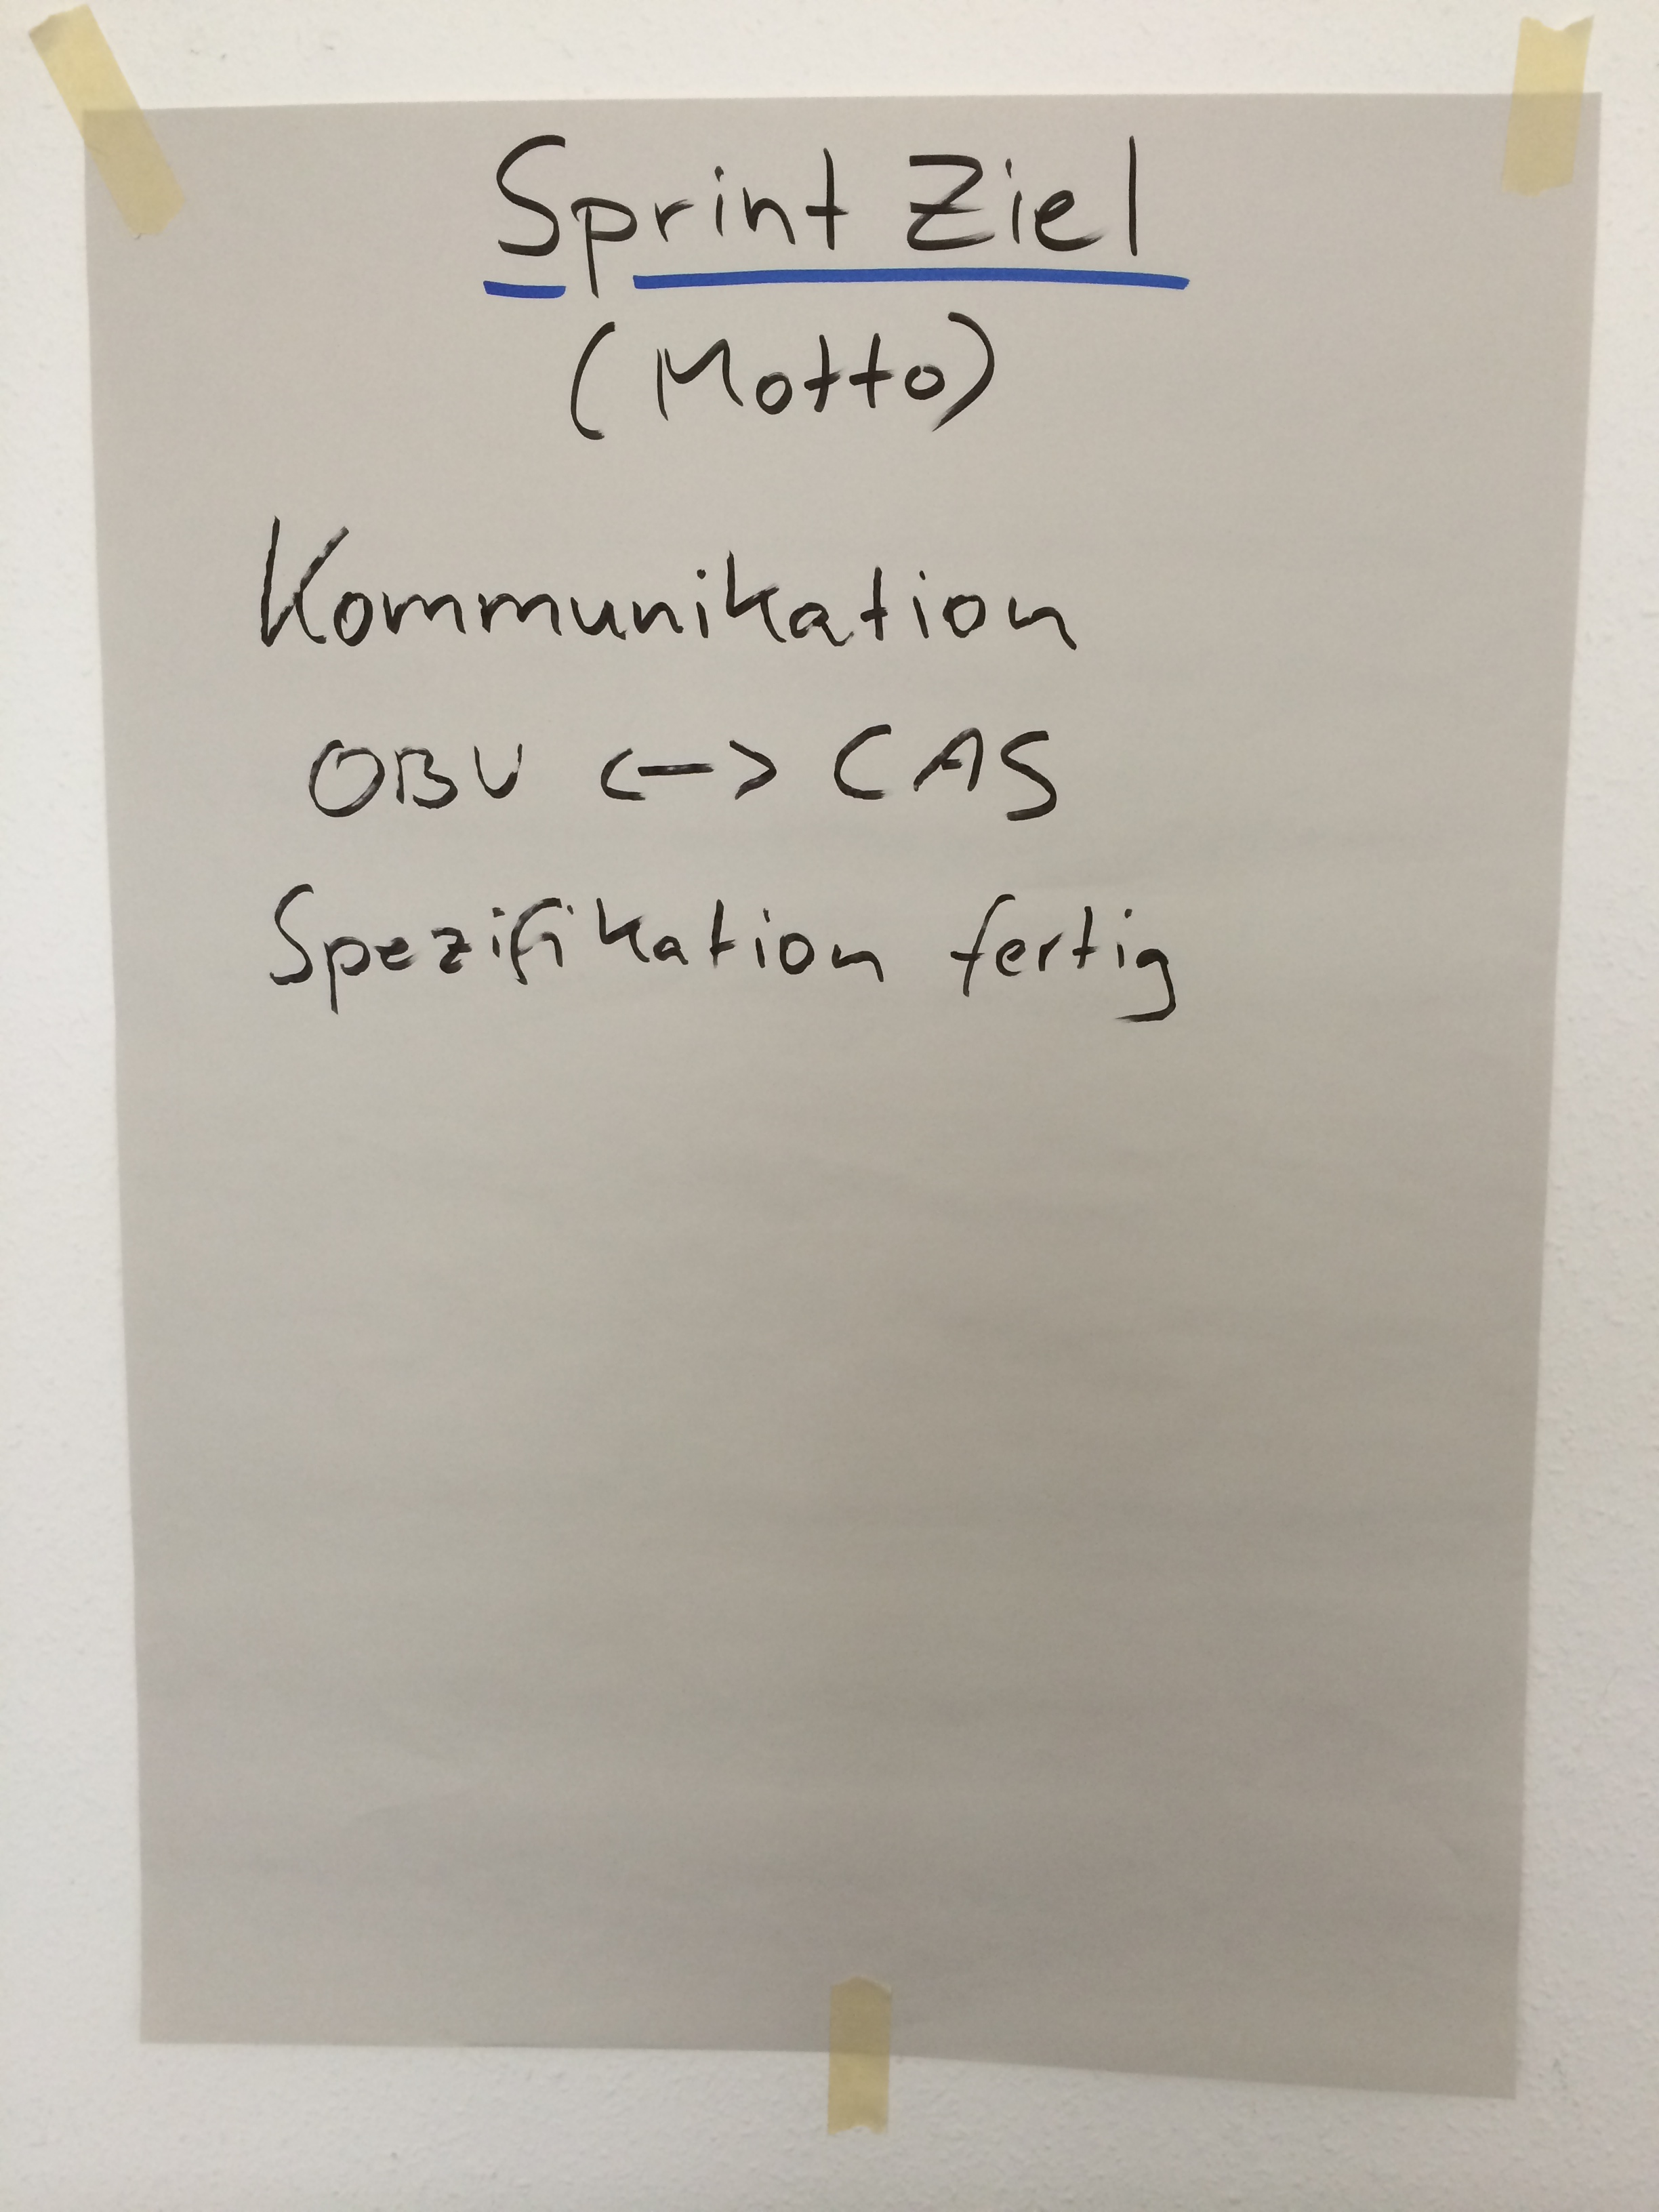 Sprint Ziel
(Motto)
Kommunikation
OBU <-> CAS
Spezifikation fertig